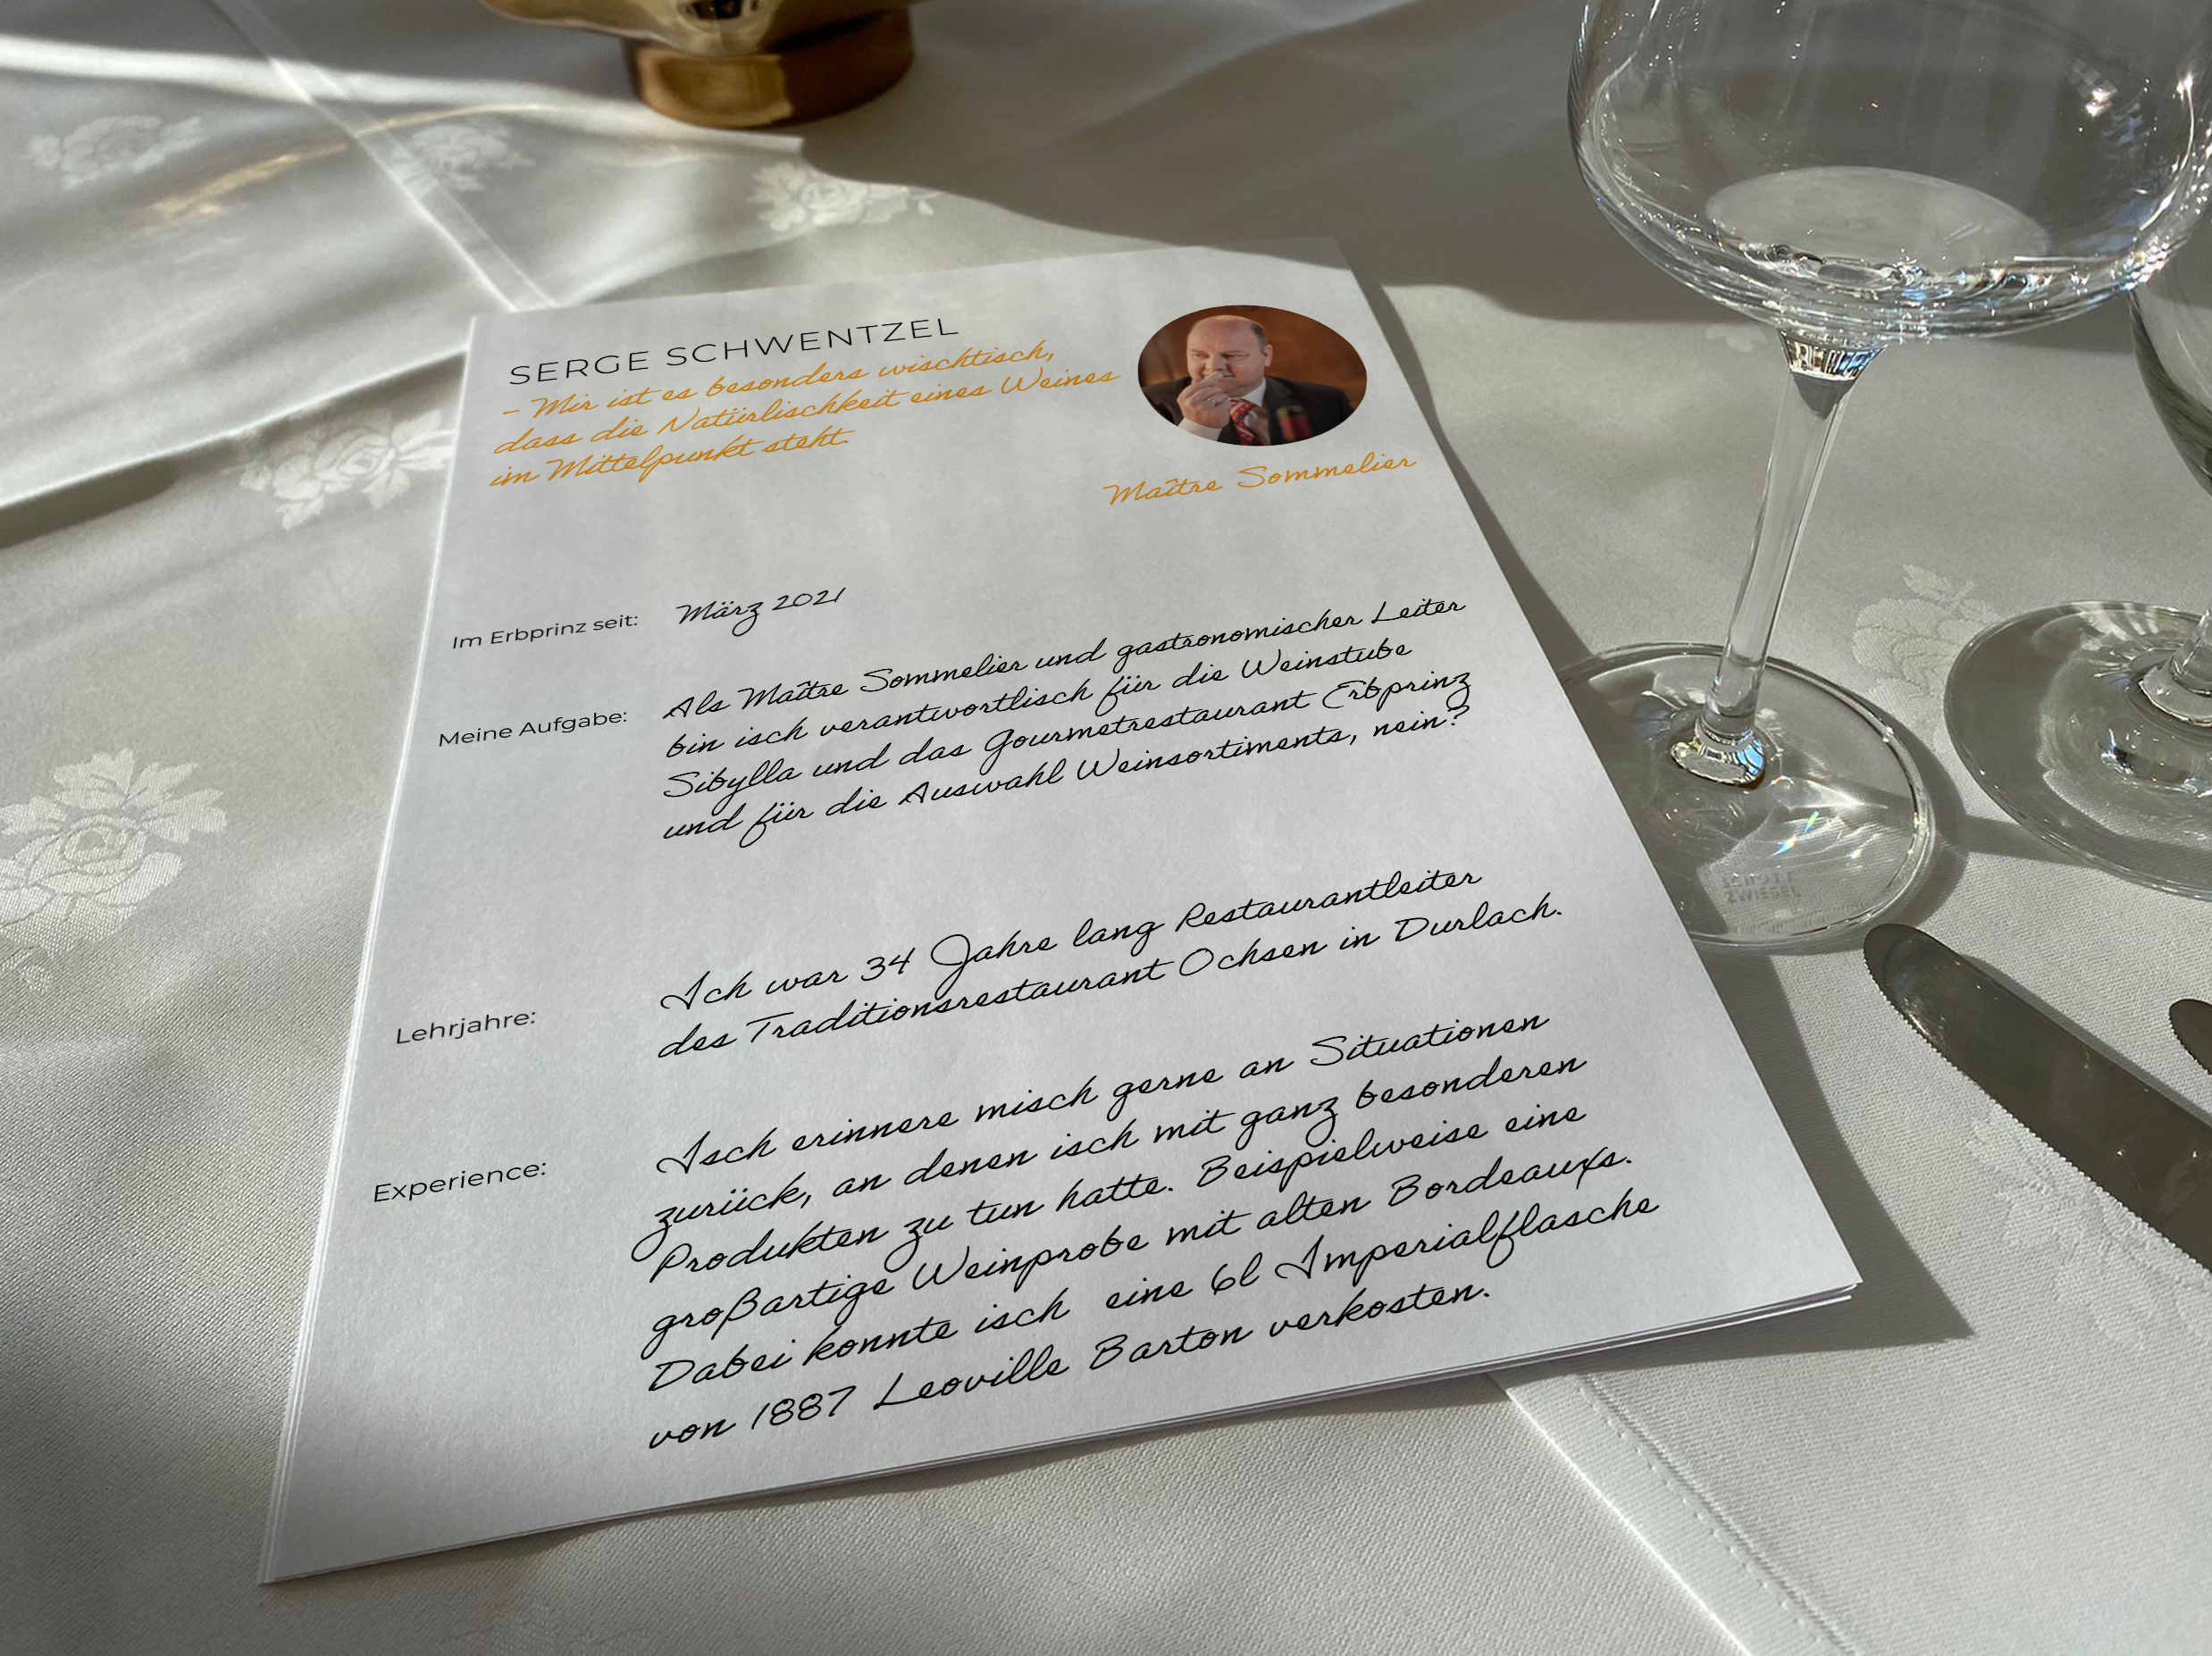 SERGE SCHWENTZEL
- Mir ist es besonders wischtisch,
dass die Natürlischkeit eines Weines
im Mittelpunkt steht.
Maître Sommelier
Im Erbprinz seit: März 2021
Meine Aufgabe: Als Maître Sommelier und gastronomischer Leiter
bin isch verantwortlisch für die Weinstube
Sibylla und das Gourmetrestaurant Erbprinz
und für die Auswahl Weinsortiments, nein?
Lehrjahre: Ich war 34 Jahre lang Restaurantleiter
des Traditionsrestaurant Ochsen in Durlach.
Experience: Isch erinnere misch gerne an Situationen
zurück, an denen isch mit ganz besonderen
Produkten zu tun hatte. Beispielweise eine
großartige Weinprobe mit alten Bordeauxs.
Dabei konnte isch eine 6l Imperialflasche
von 1887 Leoville Barton verkosten.
SCHOTT
ZWIESEL